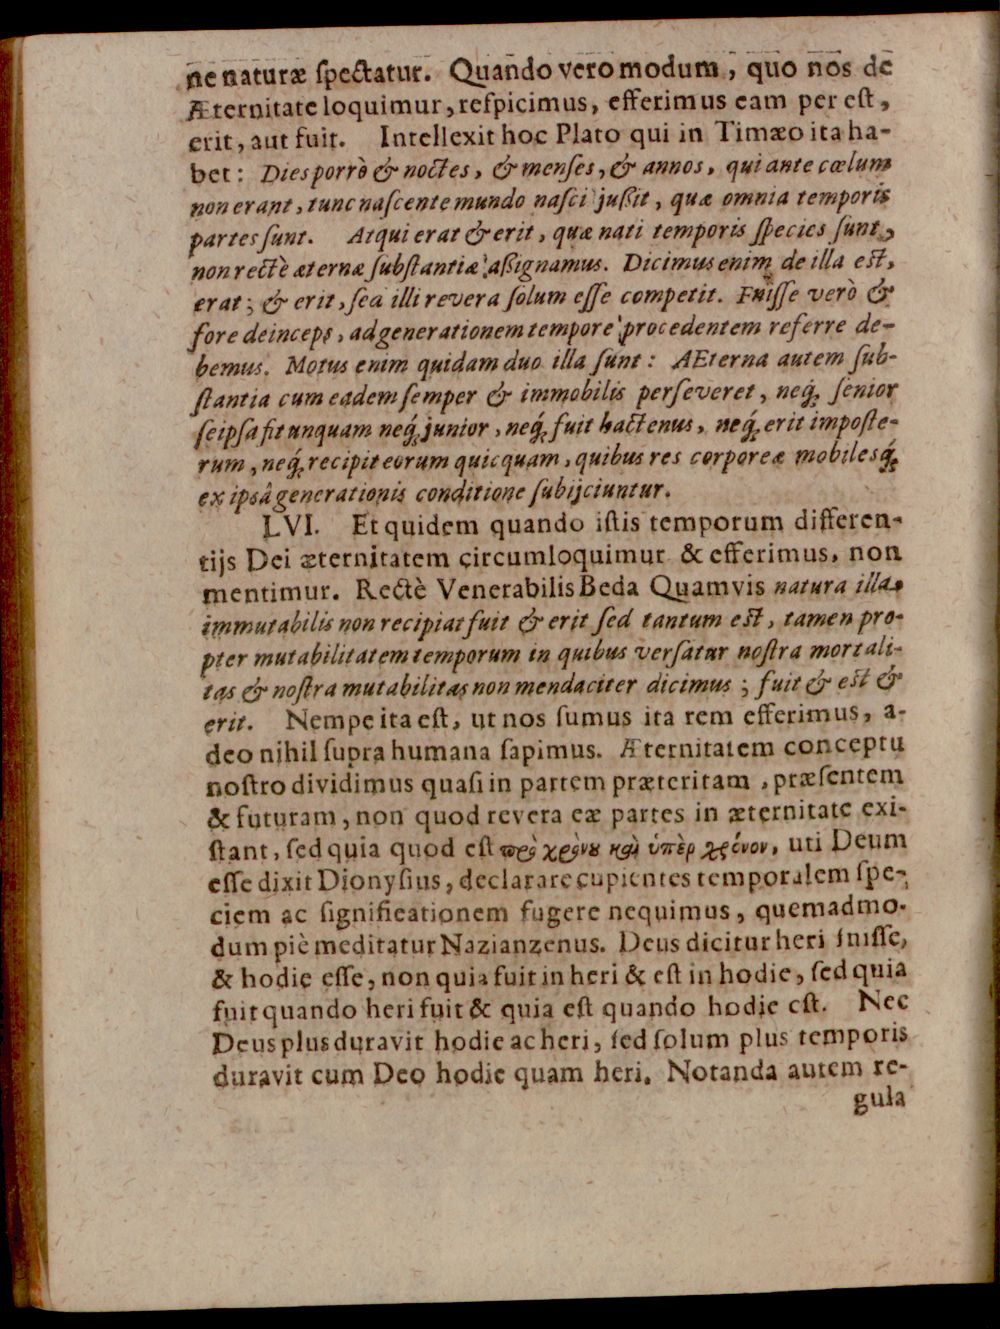 ne naturæ ſpectatur. Quando vero modum, quo nos de
Æternitate loquimur, reſpicimus, efferimus eam per eſt,
erit, aut fuit. Intellexit hoc Plato qui in Timæo ita ha-
bet: Dies porrò & noctes, & menſes, & annos, qui ante cœlum
non erant, tunc naſcente mundo naſci juſſit, quæ omnia temporis
partes ſunt. Atqui erat & erit, quæ nati temporis ſpecies ſunt,
non rectè æternæ ſubſtantiæ aſſignamus. Dicimus enim de illa eſt,
erat; & erit, ſea illi revera ſolum eſſe competit. Fuiſſe verò &
fore deinceps, ad generationem tempore procedentem referre de-
bemus. Motus enim quidam duo illa ſunt: AEterna autem ſub-
ſtantia cum eadem ſemper & immobilis perſeveret, neq; ſenior
ſeipſa fit unquam neq; junior, neq; fuit hactenus, neq; erit impoſte-
rum, neq; recipit eorum quicquam, quibus res corporeæ mobilesq;
ex ipsâ generationis conditione ſubijciuntur.
LVI. Et quidem quando iſtis temporum differen-
tijs Dei æternitatem circumloquimur & efferimus, non
mentimur. Rectè Venerabilis Beda Quamvis natura illa
immutabilis non recipiat fuit & erit ſed tantum eſt, tamen pro-
pter mutabilitatem temporum in quibus verſatur noſtra mortali-
tas & noſtra mutabilitas non mendaciter dicimus; fuit & eſt &
erit. Nempe ita eſt, ut nos ſumus ita rem efferimus, a-
deo nihil ſupra humana ſapimus. Æternitatem conceptu
noſtro dividimus quaſi in partem præteritam, præſentem
& futuram, non quod revera eæ partes in æternitate exi-
ſtant, ſed quia quod eſt πρὸ χρόνου καὶ ὑπὲρ χρόνον, uti Deum
eſſe dixit Dionyſius, declarare cupientes temporalem ſpe-
ciem ac ſignificationem fugere nequimus, quemadmo-
dum piè meditatur Nazianzenus. Deus dicitur heri fuiſſe,
& hodie eſſe, non quia fuit in heri & eſt in hodie, ſed quia
fuit quando heri fuit & quia eſt quando hodie eſt. Nec
Deus plus duravit hodie ac heri, ſed ſolum plus temporis
duravit cum Deo hodie quam heri. Notanda autem re-
gula